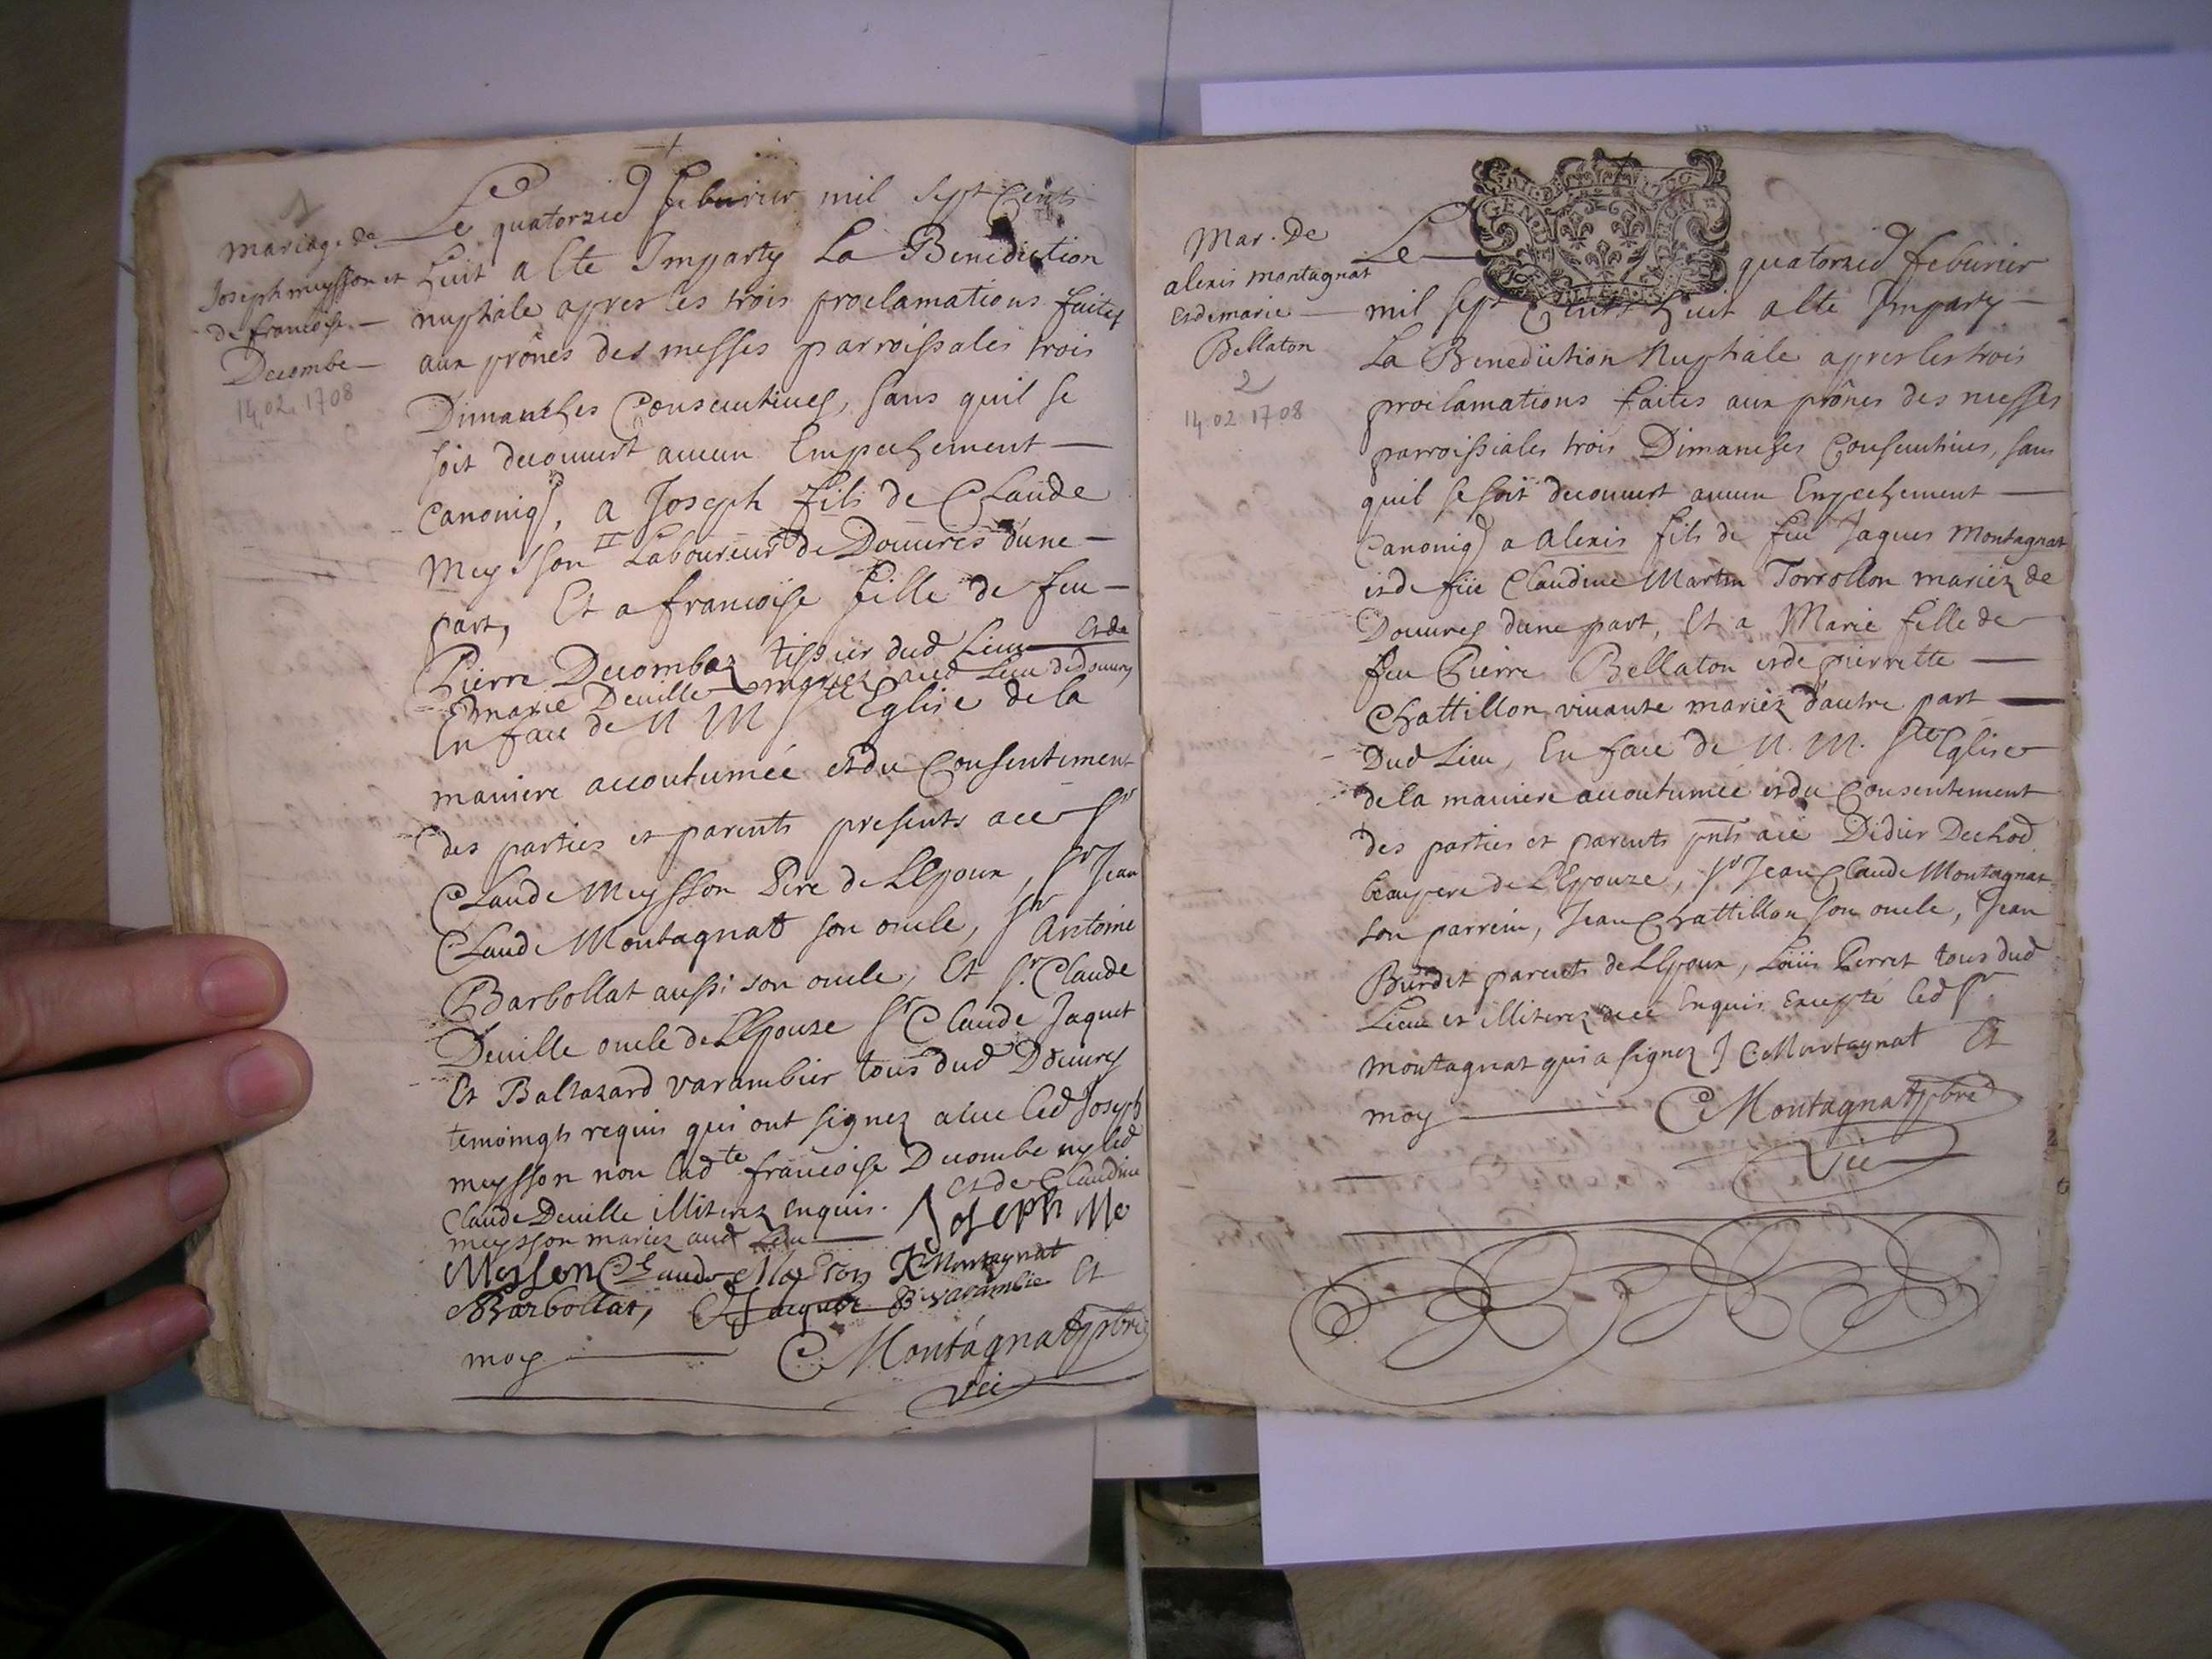 1
mariage de
Joseph meysson et
de francoise
Decombe
14.02.1708
Le quatorzied feburier mil sept Cents
huit a lte Imparty La Benediction
nuptiale apres les trois proclamations faites
aux prônes des messes parroissales trois
Dimanches Consecutives, sans quil se
soit decouvert aucun Empechement
Canoniq, a Joseph fils de Claude
Meysson Laboureur de Douvres dune
part, Et a francoise fille de feu
Pierre Decombaz tissier dud Lieu et de
marie Deville mariez aud Lieu de Douvres
En face de N M Ste Eglise de la
maniere accoutumée et du Consentement
des parties et parents presents ace Sr
Claude Meysson Pere de LEpoux, Sr Jean
Claude Montagnat son oncle, Sr Antoine
Barbollat aussi son oncle, Et Sr. Claude
Deville oncle de LEpouse Sr Claude Jaquet
Et Baltazard varambier tous dud Douvres
temoingts requis qui ont signez avec led Joseph
meysson non ladte francoise Decombe ny led
Claude Deville illiterez enquis. et de Claudine
meysson mariez aud Lieu Joseph Me
Messon Claude Montagnat
Barbollat, B varambie Et
moy C Montagnat pbre
Vic
Mar. De
alexis montagnat
et de marie
Bellaton
2
14.02.1708
GEN
Le quatorzied feburier
mil sept Cents huit a lte Imparty
La Benediction Nuptiale apres les trois
proclamations faites aux prônes des messes
parroissiales trois Dimanches Consecutives, sans
quil se soit decouvert aucun Empechement
Canoniq a alexis fils de feu Jaques Montagnat
et de füe Claudine Martin Torrollon mariéz de
Douvres dune part, Et a Marie fille de
feu Pierre Bellaton et de pierrette
Chattillon vivante mariéz dautre part
Dud Lieu, En face de N. M. Ste Eglise
de la maniere accoutumée et du Consentement
des parties et parents pnts ace Didier Dechod
beaupere de LEpouze, Sr Jean Claude Montagnat
son parrein, Jean Chattillon son oncle, Jean
Burdet parents de LEpoux, Loüis Perret tous dud
Lieu et illiterez de ce Enquis Excepté led Sr
montagnat qui a signez J C Montagnat Et
moy C Montagnat pbre
Vic